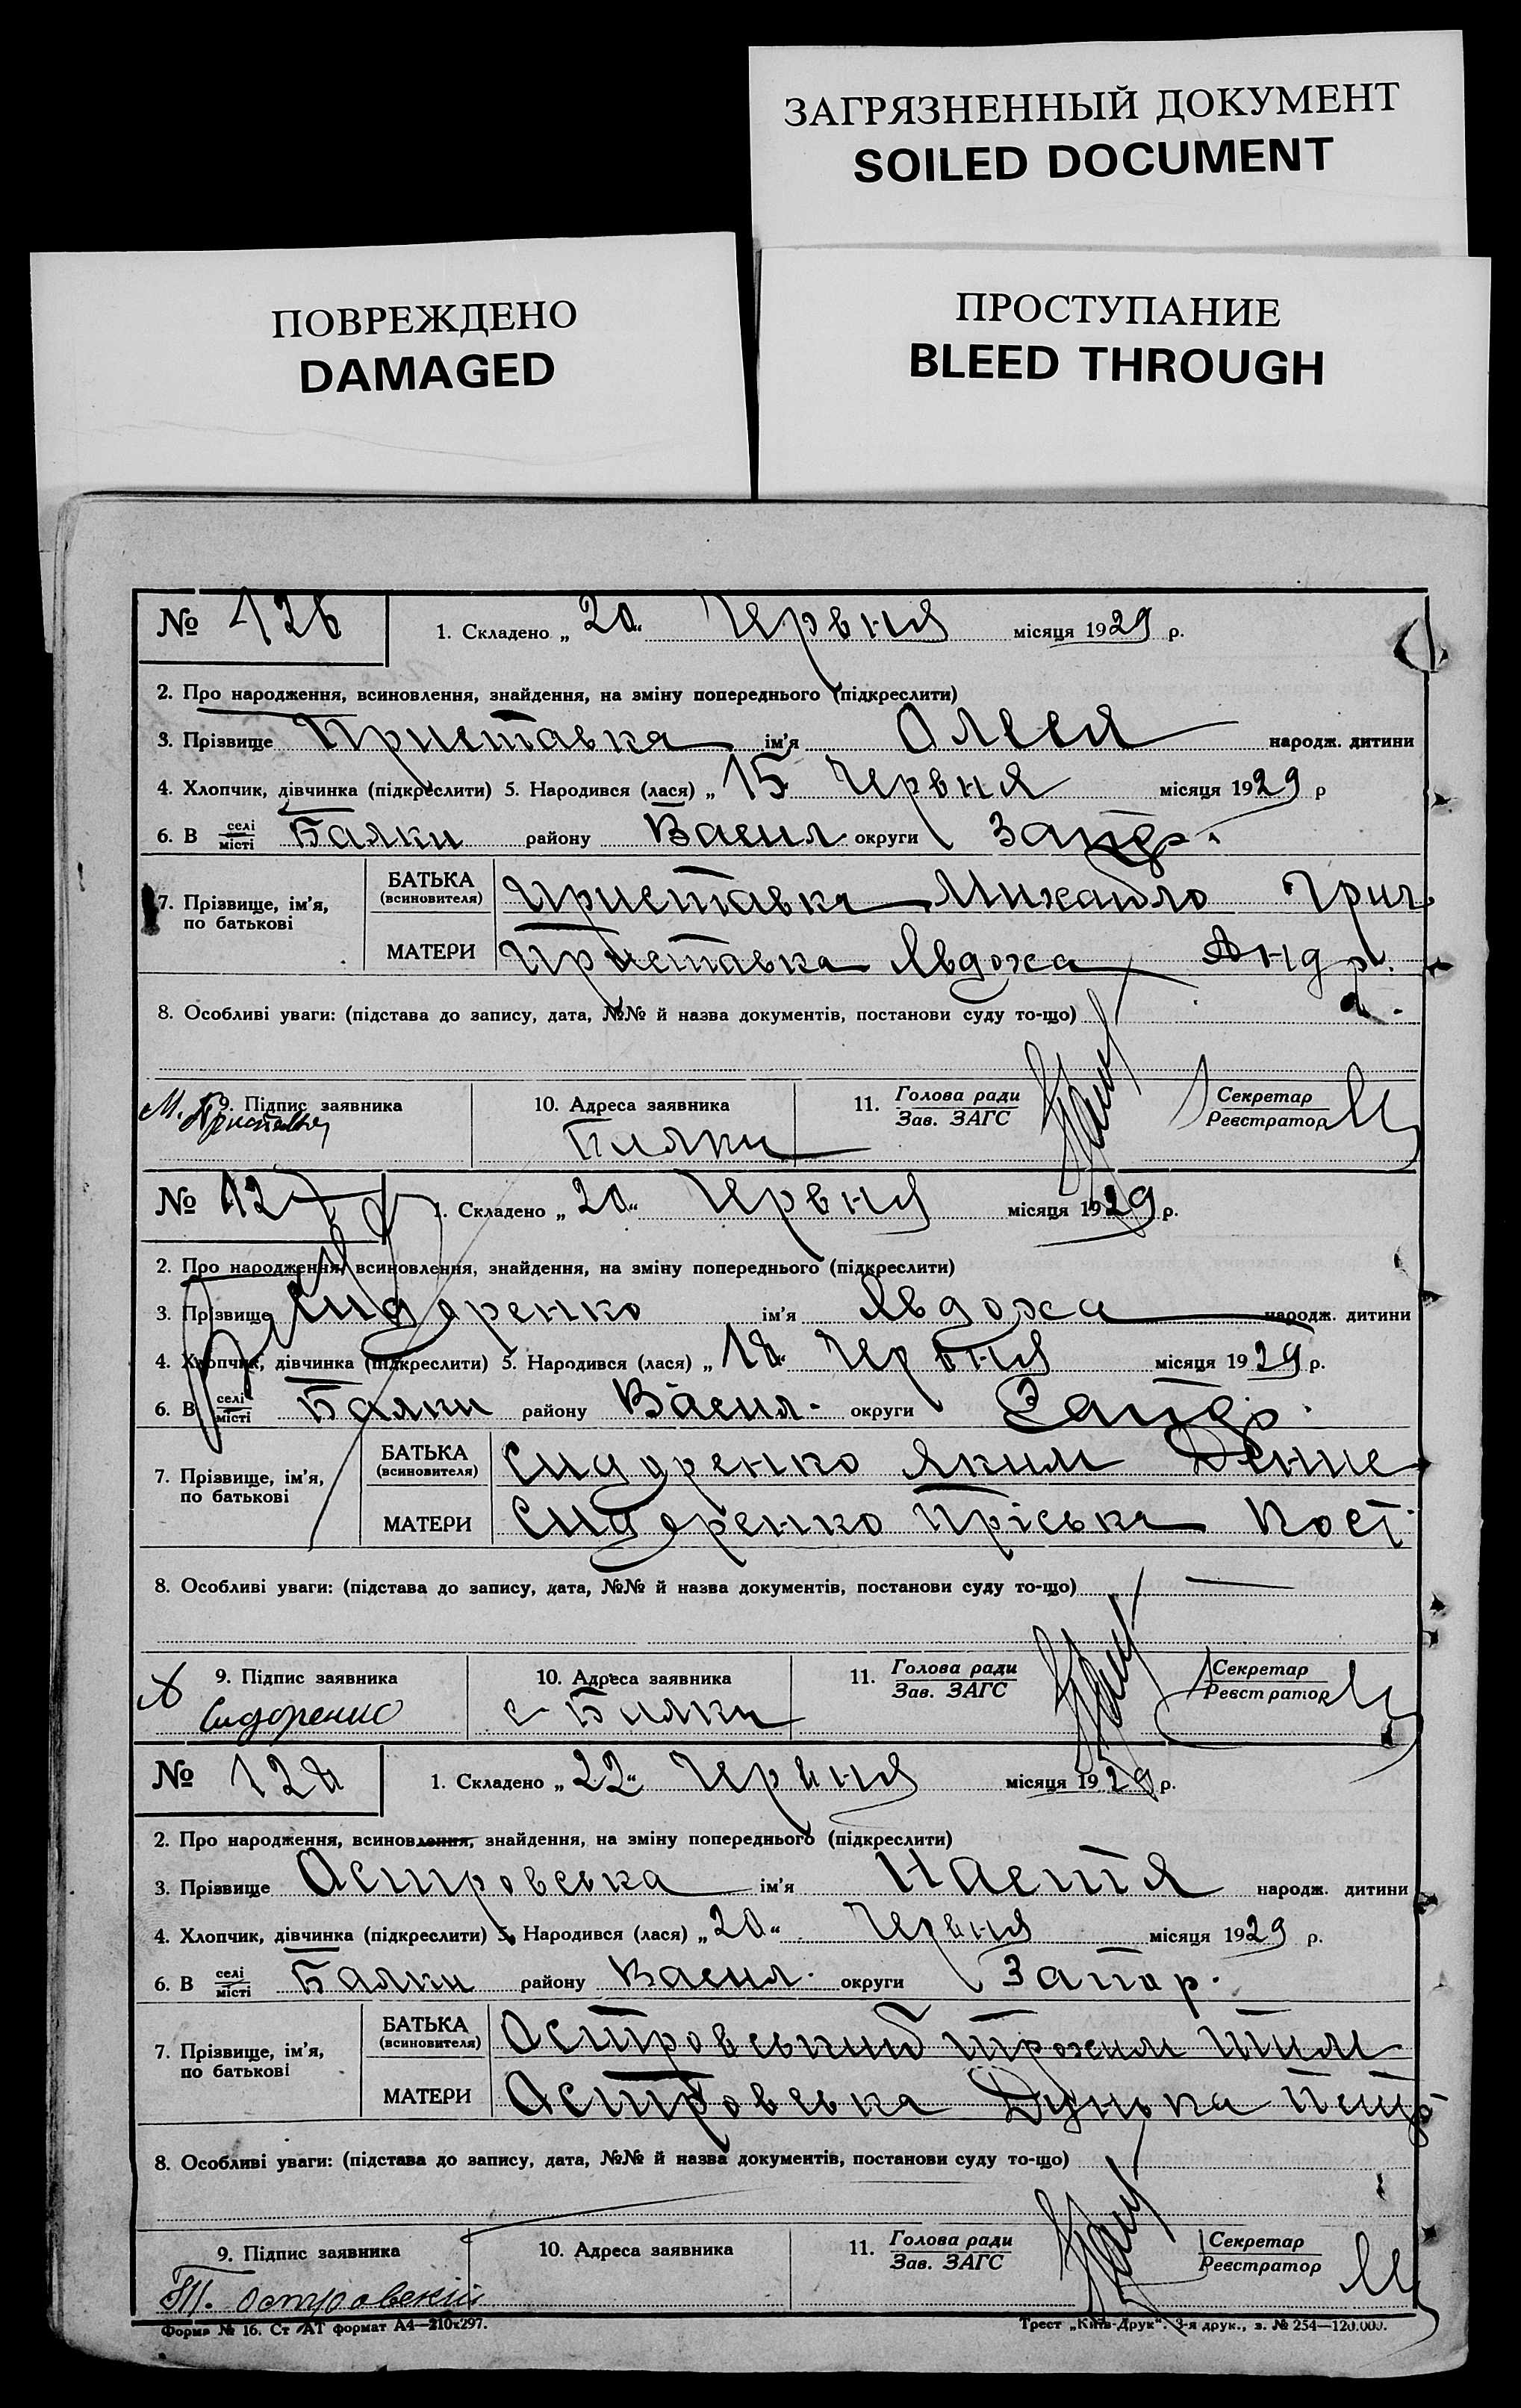 ЗАГРЯЗНЕННЫЙ ДОКУМЕНТ
SOILED DOCUMENT
ПОВРЕЖДЕНО
DAMAGED
ПРОСТУПАНИЕ
BLEED THROUGH
№ 126 1. Складено „20“ Червня місяця 1929 р.
2. Про народження, всиновлення, знайдення, на зміну попереднього (підкреслити)
3. Прізвище Приставка ім'я Олеся народж. дитини
4. Хлопчик, дівчинка (підкреслити) 5. Народився (лася) „15 Червня місяця 1929 р
6. В селі місті Балки району Васил. округи
7. Прізвище, ім'я, по батькові
БАТЬКА (всиновителя) Приставка Михайло Григ.
МАТЕРИ Приставка Явдоха Андр.
8. Особливі уваги: (підстава до запису, дата, №№ й назва документів, постанови суду то-що)
9. Підпис заявника 10. Адреса заявника 11. Голова ради Зав. ЗАГС Секретар Реєстратор
М. Приставка Балки
№ 127 1. Складено „20“ Червня місяця 1929 р.
2. Про народження, всиновлення, знайдення, на зміну попереднього (підкреслити)
3. Прізвище Сидоренко ім'я Явдоха народж. дитини
4. Хлопчик, дівчинка (підкреслити) 5. Народився (лася) „18“ Червня місяця 1929 р.
6. В селі місті Балки району Васил. округи
7. Прізвище, ім'я, по батькові
БАТЬКА (всиновителя) Сидоренко Яким Денис
МАТЕРИ Сидоренко Пріська Кост.
8. Особливі уваги: (підстава до запису, дата, №№ й назва документів, постанови суду то-що)
9. Підпис заявника 10. Адреса заявника 11. Голова ради Зав. ЗАГС Секретар Реєстратор
Сидоренко с. Балки
№ 128 1. Складено „22“ Червня місяця 1929 р.
2. Про народження, всиновлення, знайдення, на зміну попереднього (підкреслити)
3. Прізвище Островська ім'я Настя народж. дитини
4. Хлопчик, дівчинка (підкреслити) 5. Народився (лася) „20“ Червня місяця 1929 р.
6. В селі місті Балки району Васил. округи Запор.
7. Прізвище, ім'я, по батькові
БАТЬКА (всиновителя) Островський Трохим Тим
МАТЕРИ Островська Дунька Петр
8. Особливі уваги: (підстава до запису, дата, №№ й назва документів, постанови суду то-що)
9. Підпис заявника 10. Адреса заявника 11. Голова ради Зав. ЗАГС Секретар Реєстратор
Т. Островский
Форма № 16. Ст АТ формат А4—210х297. Трест „Київ-Друк“. 3-я друк., з. № 254—120.000.